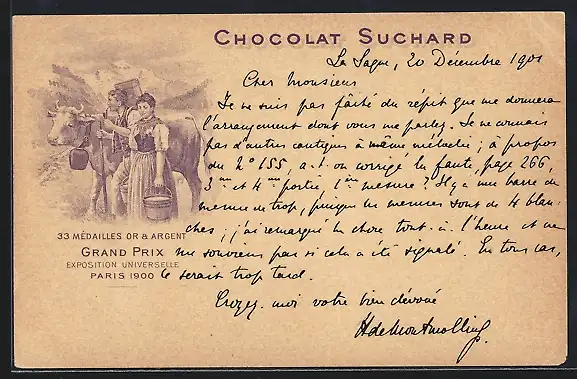 CHOCOLAT SUCHARD
La Sagne, 20 Décembre 1901
Cher Monsieur
Je ne suis pas fâché du répit que me donnera
l'arrangement dont vous me parlez. Je ne connais
pas d'autres cantiques à même mélodie; à propos
du No 155, a-t-on corrigé la faute, page 266,
3me et 4me partie, 1ère mesure? Il y a une barre de
mesure de trop, puisque les mesures sont de 4 blan-
ches; j'ai remarqué la chose tout-à-l'heure et ne
me souviens pas si cela a été signalé. En tous cas,
ce serait trop tard.
Croyez-moi votre bien dévoué
HdeMontmollin.
33 MÉDAILLES OR & ARGENT
GRAND PRIX
EXPOSITION UNIVERSELLE
PARIS 1900